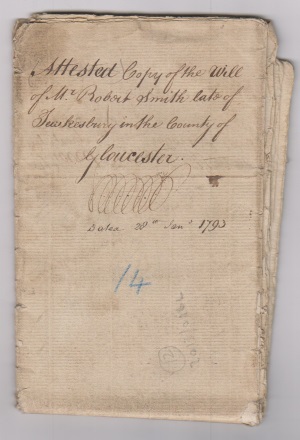 Attested Copy of the Will
of Mr Robert Smith late of
Tewkesbury in the County of
Gloucester.
Dated 28th Jany 1793
14